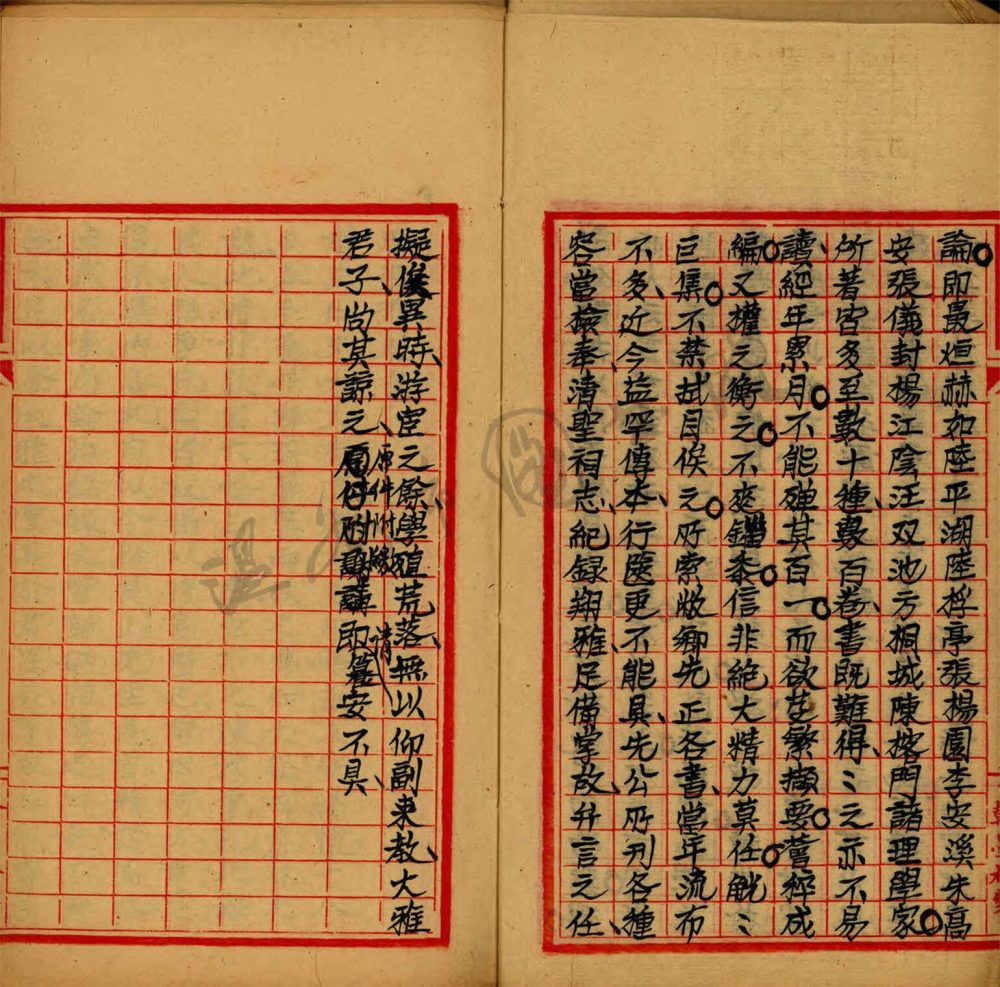 論即最烜赫如陸平湖陸桴亭張楊園李安溪朱高
安張儀封楊江陰汪双池方桐城陳榕門諸理學家
所著皆多至數十種數百卷書既難得〻之亦不易
讀經年累月不能殫其百一而欲芟繁擷要薈稡成
編又權之衡之不爽錙黍信非絕大精力莫任觥〻
巨集不禁拭目俟之所索敝鄉先正各書當年流布
不多近今益罕傳本行篋更不能具先公所刊各種
容當撿奉清聖祠志紀録翔雅足備掌故弁言之任
擬俟異時游宦之餘學殖荒落無以仰副来教大雅
君子尚其諒之原件附繳請即篹安不具